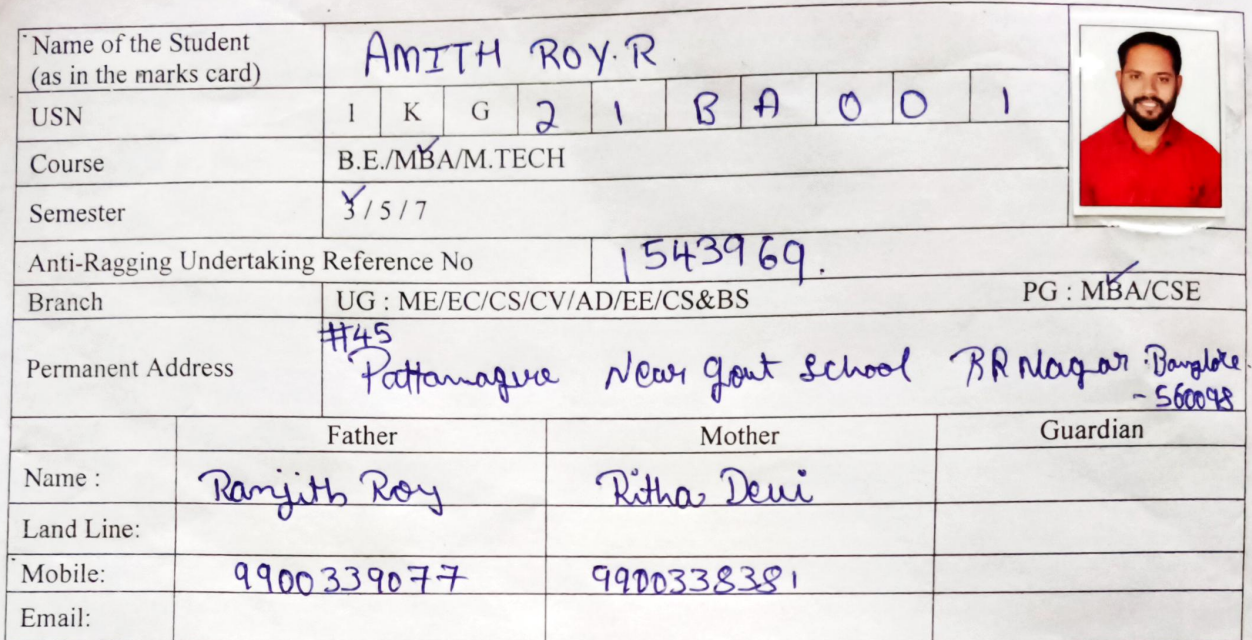 Name of the Student
(as in the marks card) AMITH ROY.R
USN 1 K G 2 1 B A 0 0 1
Course B.E./MBA/M.TECH
Semester 3 / 5 / 7
Anti-Ragging Undertaking Reference No 1543969.
Branch UG : ME/EC/CS/CV/AD/EE/CS&BS PG : MBA/CSE
#45
Permanent Address Pattamagere Near Govt School RR Nagar Banglore
- 560098
Father Mother Guardian
Name : Ranjith Roy Ritha Devi
Land Line:
Mobile: 9900339077 9900338381
Email: